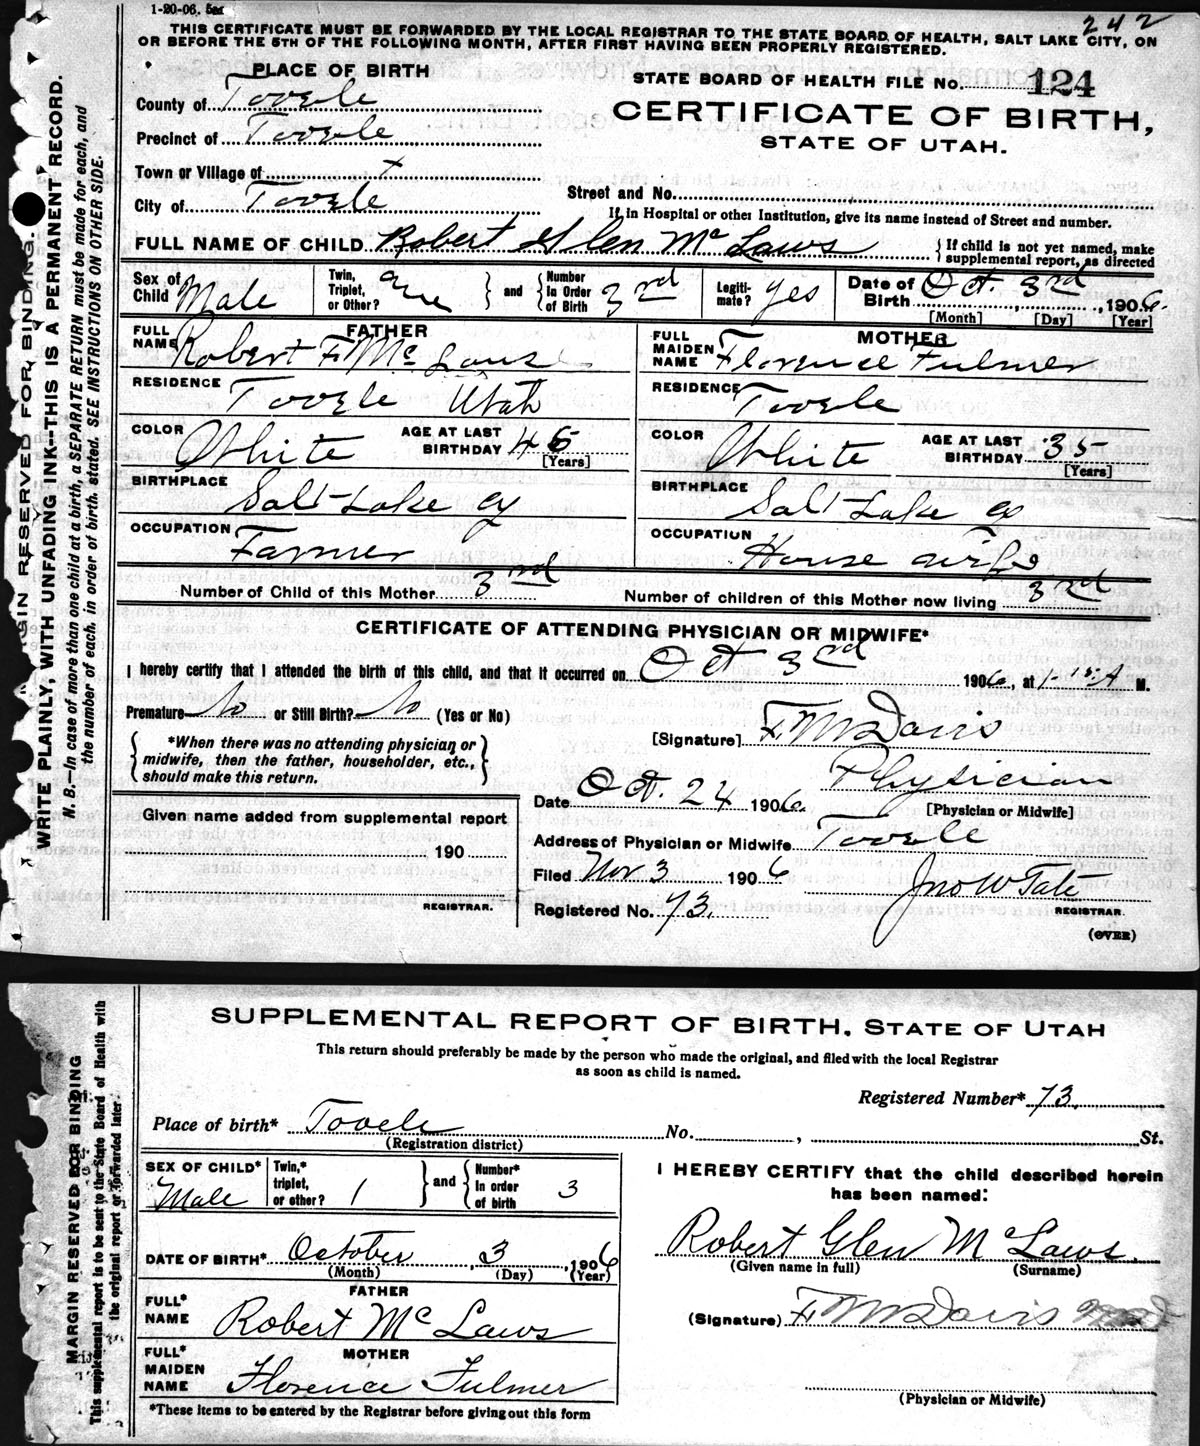 1-20-06. 5m
242
THIS CERTIFICATE MUST BE FORWARDED BY THE LOCAL REGISTRAR TO THE STATE BOARD OF HEALTH, SALT LAKE CITY, ON
OR BEFORE THE 5TH OF THE FOLLOWING MONTH, AFTER FIRST HAVING BEEN PROPERLY REGISTERED.
PLACE OF BIRTH
STATE BOARD OF HEALTH FILE No. 124
County of Tooele
CERTIFICATE OF BIRTH,
Precinct of Tooele
STATE OF UTAH.
Town or Village of x
City of Tooele
Street and No.
If in Hospital or other Institution, give its name instead of Street and number.
FULL NAME OF CHILD Robert Glen McLaws { If child is not yet named, make supplemental report, as directed
Sex of Child Male Twin, Triplet, or Other? One } and { Number In Order of Birth 3rd Legiti- mate? yes Date of Birth Oct. 3rd, 1906.
[Month] [Day] [Year]
FATHER
FULL NAME Robert F. McLaws
MOTHER
FULL MAIDEN NAME Florence Fulmer
RESIDENCE Tooele Utah
RESIDENCE Tooele
COLOR White AGE AT LAST BIRTHDAY 46 [Years]
COLOR White AGE AT LAST BIRTHDAY 35 [Years]
BIRTHPLACE Salt Lake Cy
BIRTHPLACE Salt Lake Co
OCCUPATION Farmer
OCCUPATION House wife
Number of Child of this Mother 3rd
Number of children of this Mother now living 3rd
CERTIFICATE OF ATTENDING PHYSICIAN OR MIDWIFE*
I hereby certify that I attended the birth of this child, and that it occurred on Oct 3rd 1906, at 1-15 A M.
Premature No or Still Birth? No (Yes or No)
{ *When there was no attending physician or
midwife, then the father, householder, etc.,
should make this return. }
[Signature] F. M. Davis
Physician
[Physician or Midwife]
Date Oct. 24 1906.
Given name added from supplemental report
190
REGISTRAR.
Address of Physician or Midwife Tooele
Filed Nov 3 1906
Jno W Tate
REGISTRAR.
Registered No. 73.
(OVER)
MARGIN RESERVED FOR BINDING.
WRITE PLAINLY, WITH UNFADING INK--THIS IS A PERMANENT RECORD.
N. B.—In case of more than one child at a birth, a SEPARATE RETURN must be made for each, and
the number of each, in order of birth, stated. SEE INSTRUCTIONS ON OTHER SIDE.
SUPPLEMENTAL REPORT OF BIRTH, STATE OF UTAH
This return should preferably be made by the person who made the original, and filed with the local Registrar
as soon as child is named.
Registered Number* 73.
Place of birth* Tooele No. , St.
(Registration district)
SEX OF CHILD* Male Twin,* triplet, or other? 1 } and { Number* In order of birth 3
I HEREBY CERTIFY that the child described herein
has been named:
DATE OF BIRTH* October 3, 1906
(Month) (Day) (Year)
Robert Glen McLaws.
(Given name in full) (Surname)
FATHER
FULL* NAME Robert McLaws
(Signature) F. M. Davis
MOTHER
FULL* MAIDEN NAME Florence Fulmer
(Physician or Midwife)
*These items to be entered by the Registrar before giving out this form
MARGIN RESERVED FOR BINDING
This supplemental report is to be sent to the State Board of Health with
the original report or forwarded later.